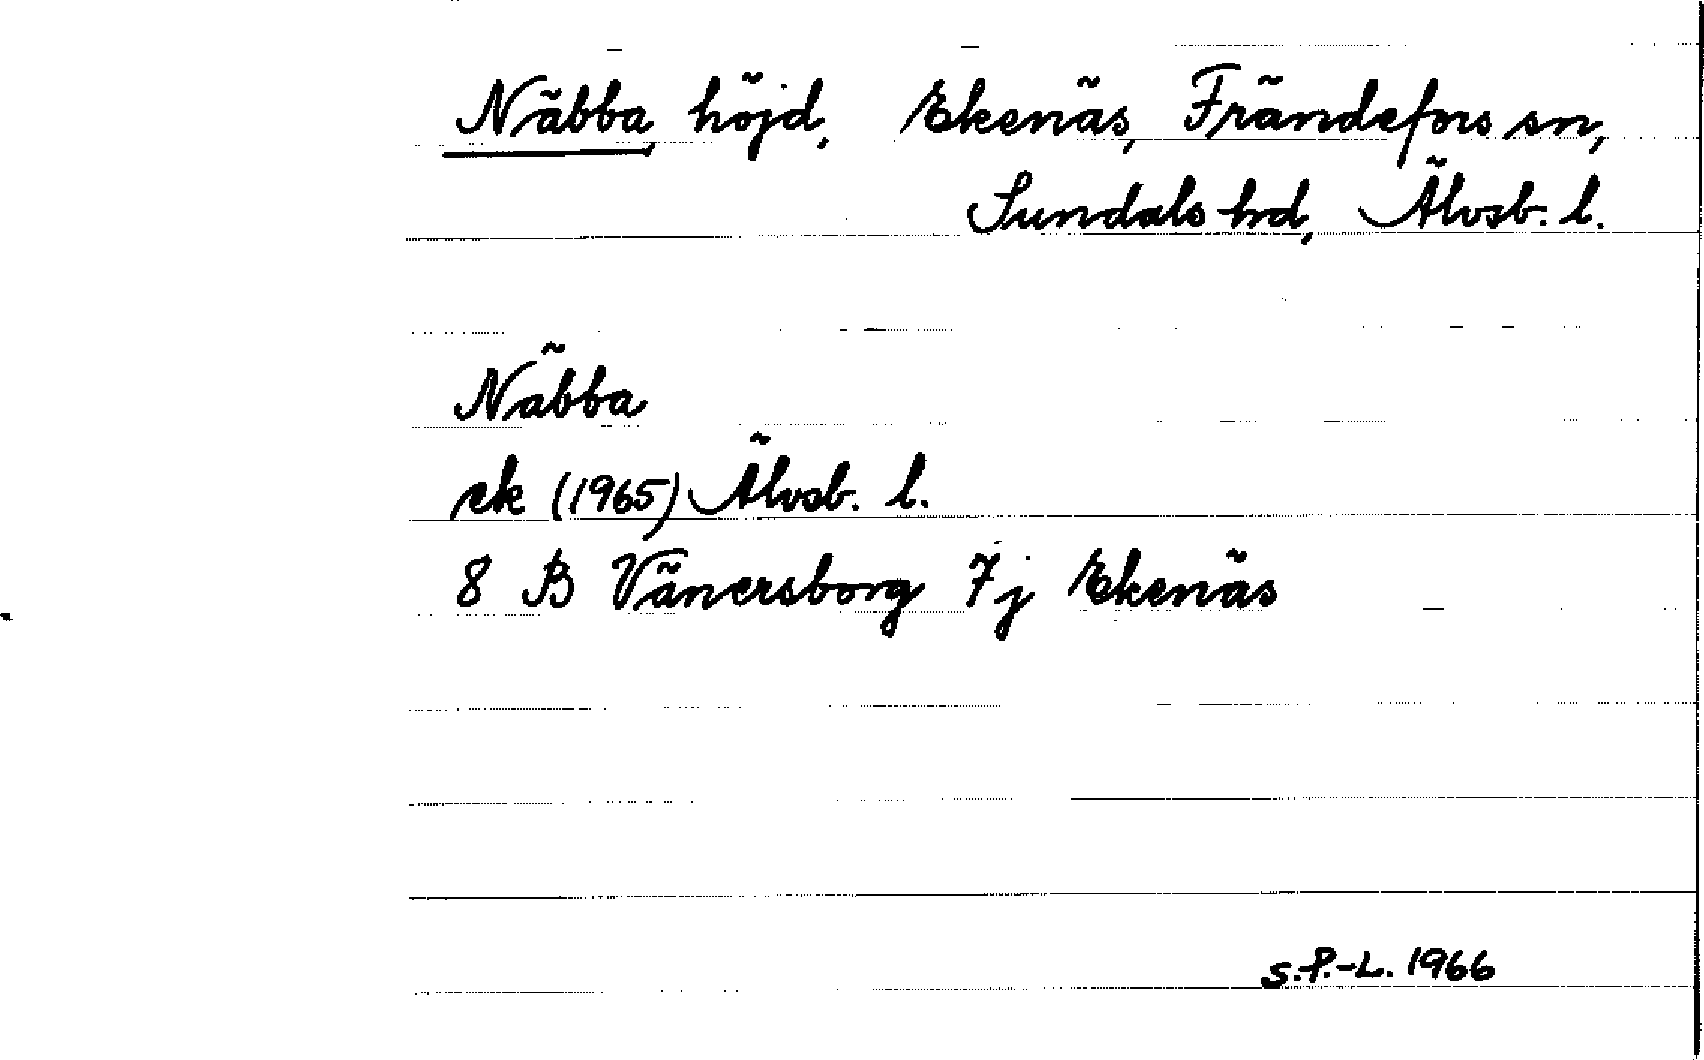 Näbba, höjd, Ekenäs, Frändefors sn,
Sundals hd, Älvsb. l.
Näbba
ek (1965) Älvsb. l.
8 B Vänersborg 7j Ekenäs
S.P.-L. 1966